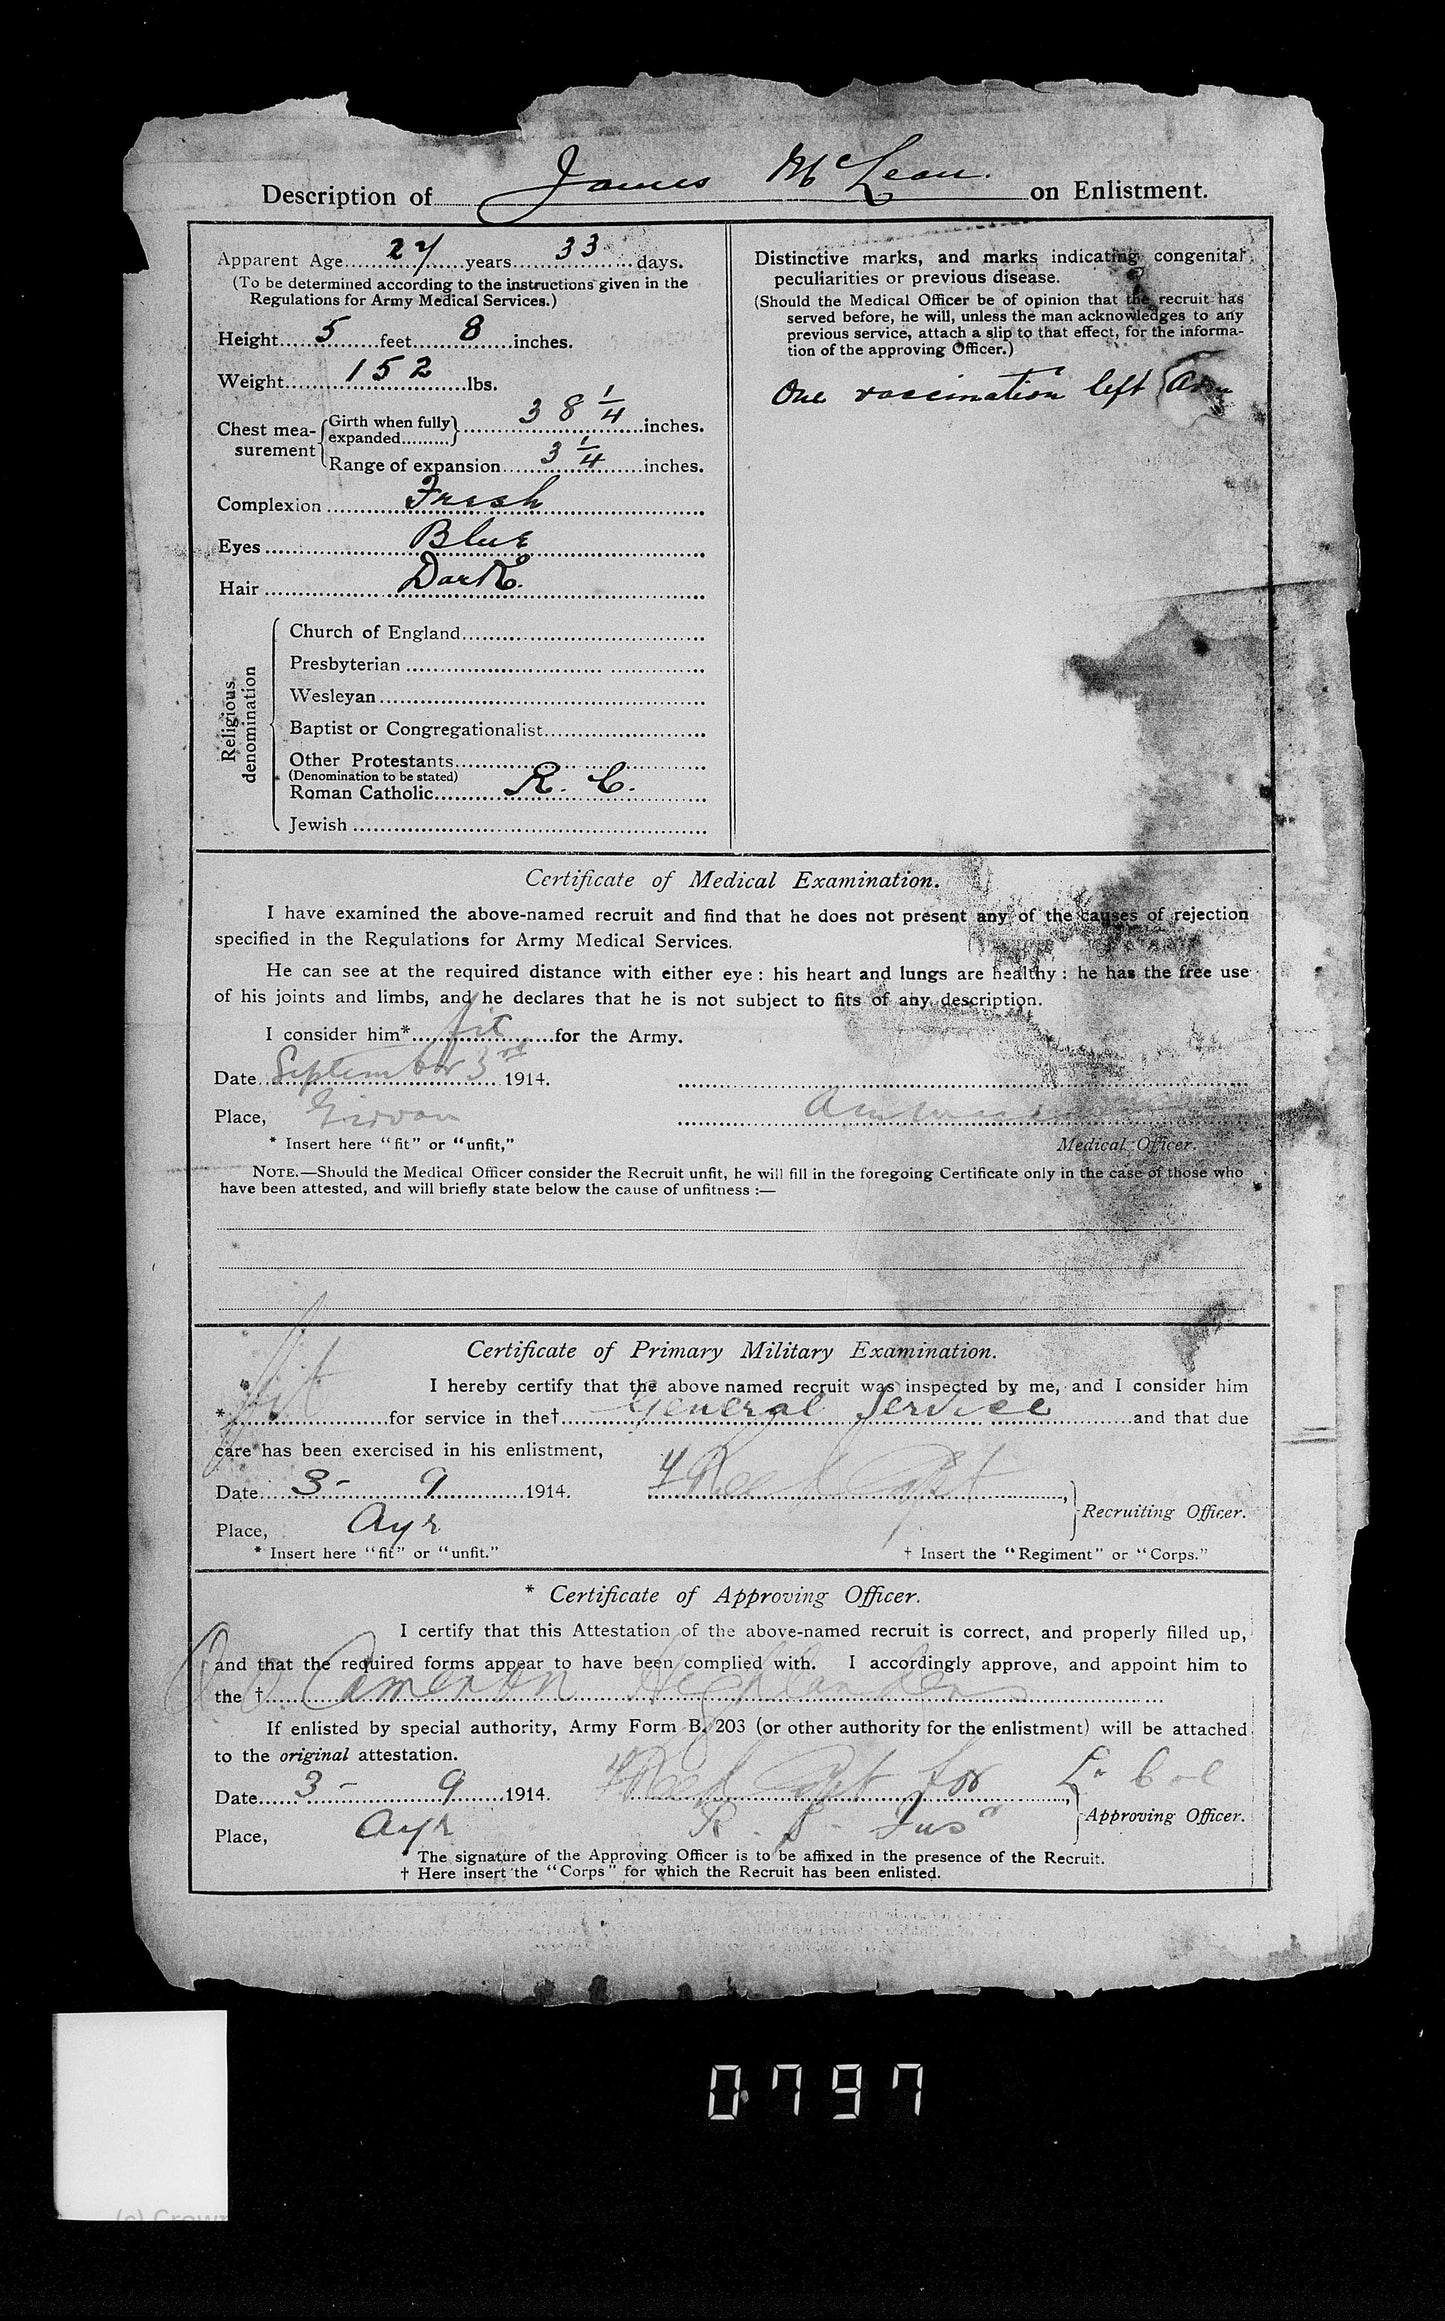 Description of James McLean. on Enlistment.
Apparent Age 27 years 33 days.
(To be determined according to the instructions given in the
Regulations for Army Medical Services.)
Height 5 feet 8 inches.
Weight 152 lbs.
Chest mea-surement { Girth when fully expanded } 38 1/4 inches.
Range of expansion 3 1/4 inches.
Complexion Fresh
Eyes Blue
Hair Dark.
Religious denomination
Church of England
Presbyterian
Wesleyan
Baptist or Congregationalist
Other Protestants
(Denomination to be stated)
Roman Catholic R. C.
Jewish
Distinctive marks, and marks indicating congenital
peculiarities or previous disease.
(Should the Medical Officer be of opinion that the recruit has
served before, he will, unless the man acknowledges to any
previous service, attach a slip to that effect, for the informa-
tion of the approving Officer.)
One vaccination left Arm
Certificate of Medical Examination.
I have examined the above-named recruit and find that he does not present any of the causes of rejection
specified in the Regulations for Army Medical Services.
He can see at the required distance with either eye : his heart and lungs are healthy : he has the free use
of his joints and limbs, and he declares that he is not subject to fits of any description.
I consider him* fit for the Army.
Date September 3rd 1914.
Place, Girvan
Medical Officer.
* Insert here "fit" or "unfit,"
NOTE.—Should the Medical Officer consider the Recruit unfit, he will fill in the foregoing Certificate only in the case of those who
have been attested, and will briefly state below the cause of unfitness :—
Certificate of Primary Military Examination.
I hereby certify that the above named recruit was inspected by me, and I consider him
* fit for service in the† General Service and that due
care has been exercised in his enlistment,
Date 3 - 9 1914. Capt
Recruiting Officer.
Place, Ayr
* Insert here "fit" or "unfit."
† Insert the "Regiment" or "Corps."
* Certificate of Approving Officer.
I certify that this Attestation of the above-named recruit is correct, and properly filled up,
and that the required forms appear to have been complied with. I accordingly approve, and appoint him to
the † Cameron Highlanders
If enlisted by special authority, Army Form B. 203 (or other authority for the enlistment) will be attached
to the original attestation.
Date 3 - 9 1914. Capt for Lt Col
Approving Officer.
Place, Ayr R. S. Fusrs
* The signature of the Approving Officer is to be affixed in the presence of the Recruit.
† Here insert the "Corps" for which the Recruit has been enlisted.
0797